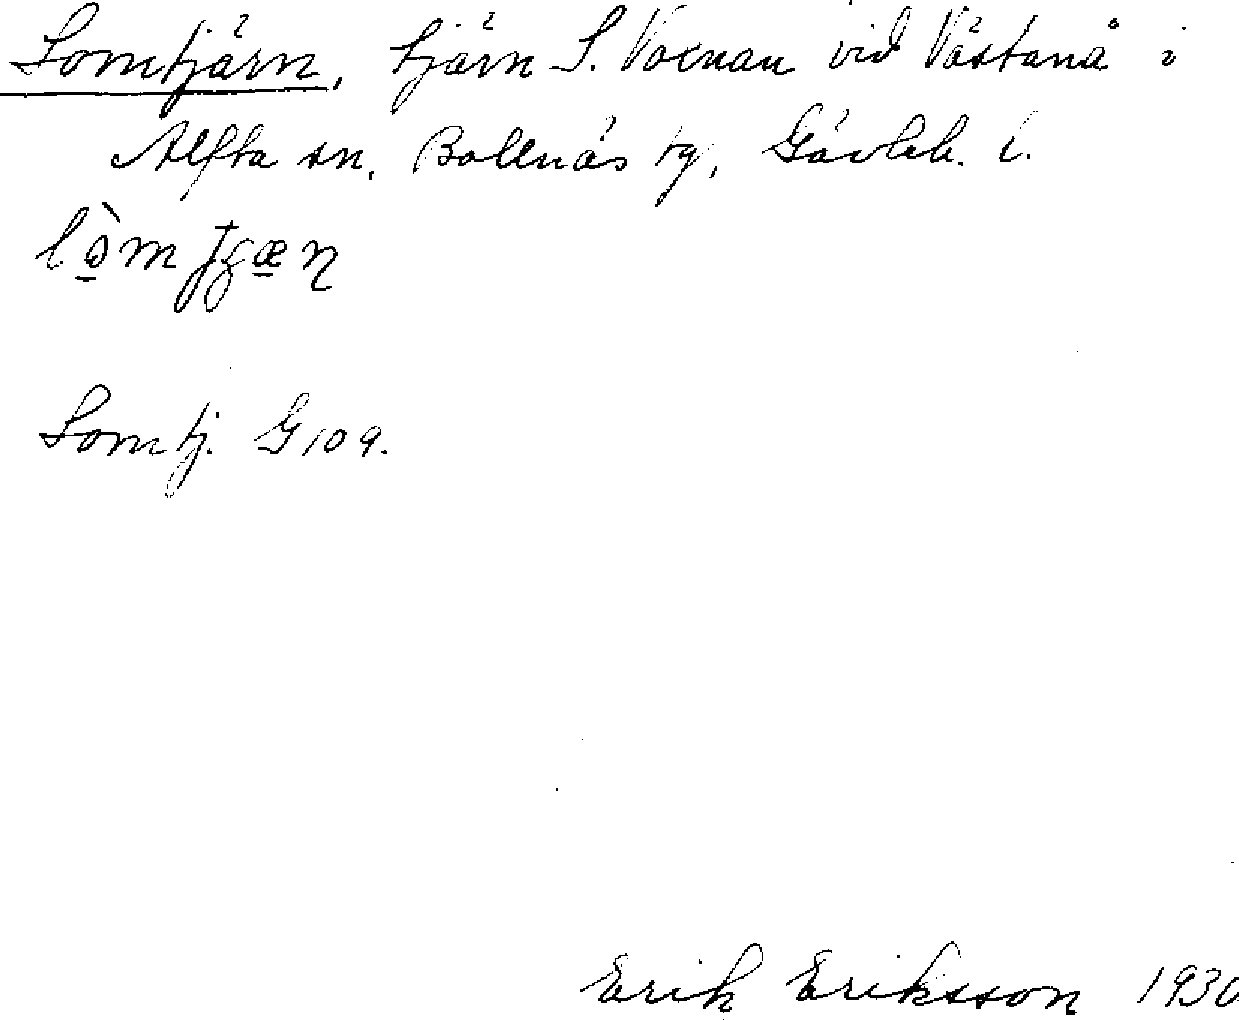 Lomtjärn, tjärn S. Voxnan vid Västanå i
Alfta sn, Bollnäs tg, Gävleb. l.
Lomtj. G 109.
Erik Eriksson 1930